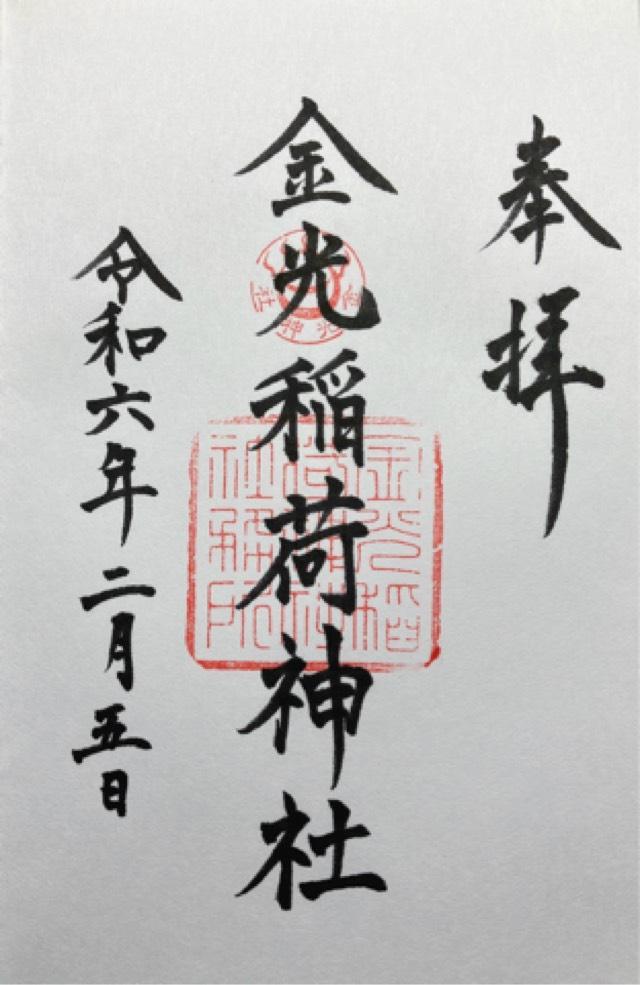 奉拝
金光稲荷神社
令和六年二月五日
金光稲
荷神社
社務所